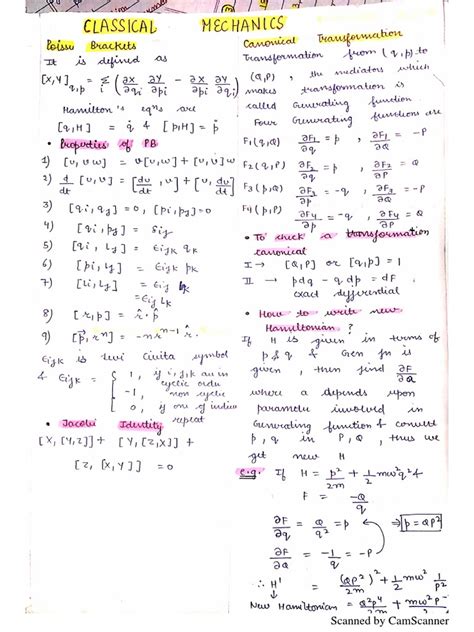 CLASSICAL MECHANICS
Poisson Brackets
It is defined as
[X,Y]q,p = Σi (∂X/∂qi ∂Y/∂pi − ∂X/∂pi ∂Y/∂qi)
Hamilton's eqns are
[q,H] = q̇ & [p,H] = ṗ
• Properties of PB
1) [u,vw] = v[u,w] + [u,v]w
2) d/dt [u,v] = [du/dt, v] + [u, dv/dt]
3) [qi,qj] = 0, [pi,pj] = 0
4) [qi,pj] = δij
5) [qi, Lj] = Eijk qk
6) [pi, Lj] = Eijk pk
7) [Li, Lj] = Eijk Lk
8) [r,p] = r̂
9) [p⃗, rⁿ] = −n rⁿ⁻¹ r̂
Eijk is levi civita symbol
& Eijk = { 1, if i,j,k an in cyclic order
−1, non cyclic
0, if one of indices repeat
• Jacobi Identity
[X,[Y,Z]] + [Y,[Z,X]] +
[Z,[X,Y]] = 0
Canonical Transformation
Transformation from (q,p) to
(Q,P), the mediators which
makes transformation is
called Generating function
Four Generating functions are
F1(q,Q) ∂F1/∂q = p, ∂F1/∂Q = −P
F2(q,P) ∂F2/∂q = p, ∂F2/∂P = Q
F3(p,Q) ∂F3/∂p = −q, ∂F3/∂Q = −P
F4(p,P) ∂F4/∂p = −q, ∂F4/∂P = Q
• To check a transformation
canonical
I → [Q,P] or [q,p] = 1
II → pdq − qdp = dF
exact differential
• How to write new
Hamiltonian ?
If H is given in terms of
p & q & Gen fn is
given, then find ∂F/∂Q
where a depends upon
parameter involved in
Generating function & convert
p, q in P, Q, thus we
get new H
e.g. If H = p²/2m + 1/2 mω²q² &
F = −Q/q
∂F/∂q = Q/q² = p ⇒ p = QP²
∂F/∂Q = −1/q = −P
∴ H' = (QP²)²/2m + 1/2 mω² 1/P²
New Hamiltonian = Q²P⁴/2m +
Scanned by CamScanner